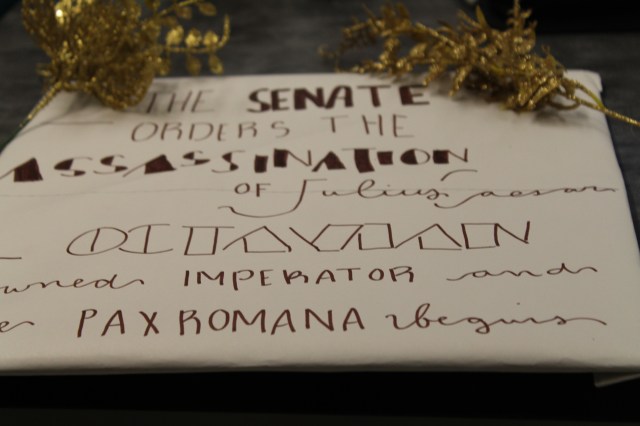 THE SENATE
ORDERS THE
ASSASSINATION
OF Julius Caesar
OCTAVIAN
wned IMPERATOR and
PAX ROMANA begins